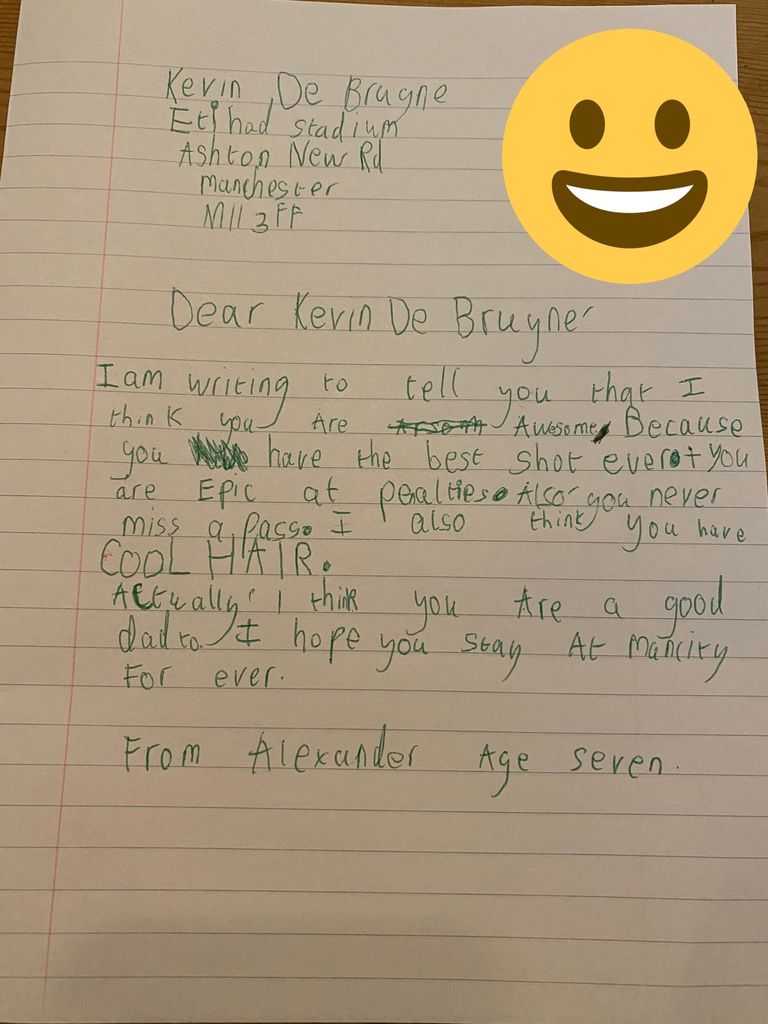 Kevin De Bruyne
Etihad stadium
Ashton New Rd
Manchester
M11 3FF
Dear Kevin De Bruyne
I am writing to tell you that I
think you Are Awesome, Because
you have the best shot ever + you
are Epic at pealties. Also you never
miss a pass. I also think you have
COOL HAIR.
Actually I think you Are a good
dad to. I hope you stay At Mancity
For ever.
From Alexander Age seven.